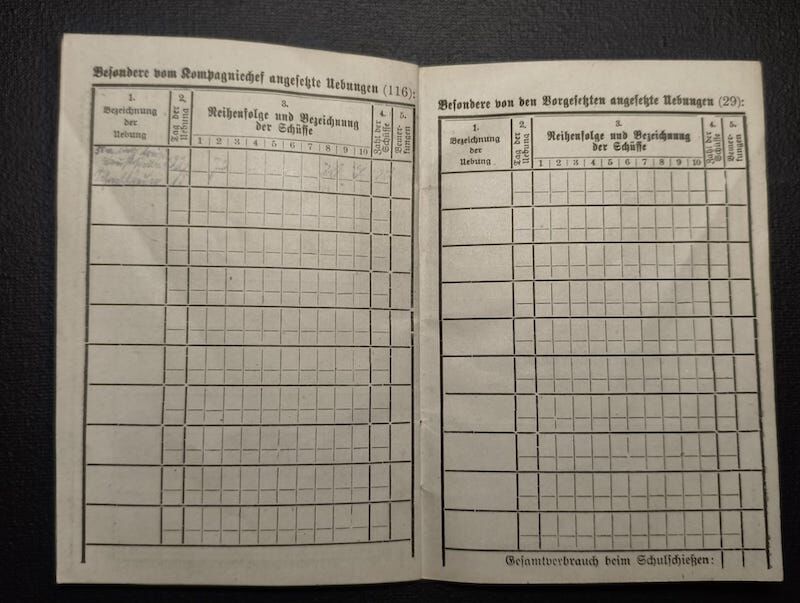 Besondere vom Kompagniechef angesetzte Uebungen (116):
1.
Bezeichnung
der
Uebung
2.
Tag der
Uebung
3.
Reihenfolge und Bezeichnung
der Schüsse
1 2 3 4 5 6 7 8 9 10
4.
Zahl der
Schüsse
5.
Bemer-
kungen
Besondere von den Vorgesetzten angesetzte Uebungen (29):
1.
Bezeichnung
der
Uebung
2.
Tag der
Uebung
3.
Reihenfolge und Bezeichnung
der Schüsse
1 2 3 4 5 6 7 8 9 10
4.
Zahl der
Schüsse
5.
Bemer-
kungen
Gesamtverbrauch beim Schulschießen: